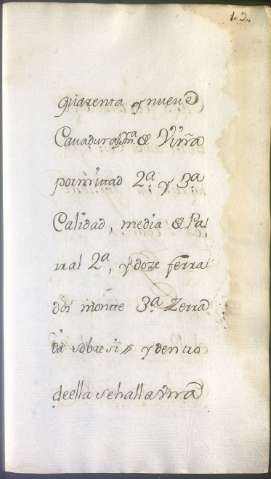 12.
quarenta y nueve
Cavaduras de Viña
por mitad 2ª y 3ª
Calidad, media de Pa
ral 2ª, y doze ferra
dos monte 3ª Zerra
da sobresi, y dentro
deella sehalla una